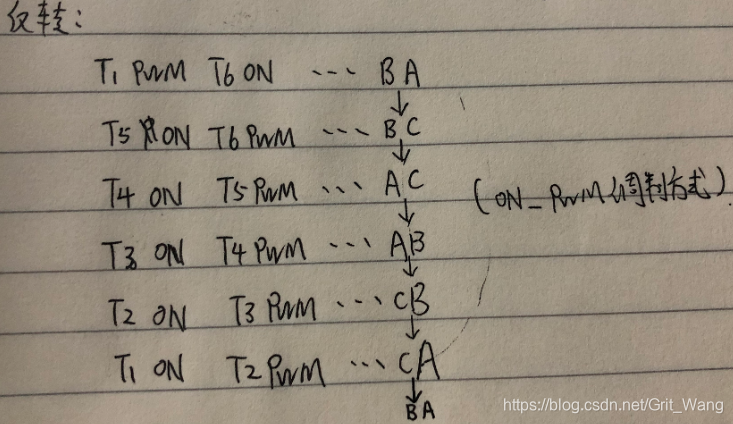 反转:
T1 PWM T6 ON ... BA
↓
T5 ON T6 PWM ... BC
↓
T4 ON T5 PWM ... AC
(ON_PWM调制方式)
↓
T3 ON T4 PWM ... AB
↓
T2 ON T3 PWM ... CB
↓
T1 ON T2 PWM ... CA
↓
BA
https://blog.csdn.net/Grit_Wang